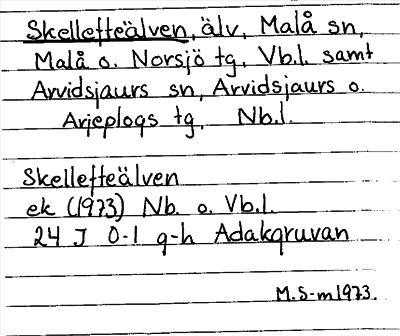 Skellefteälven, älv, Malå sn,
Malå o. Norsjö tg, Vb.l. samt
Arvidsjaurs sn, Arvidsjaurs o.
Arjeplogs tg, Nb.l.
Skellefteälven
ek (1973) Nb. o. Vb.l.
24 J 0-1 g-h Adakgruvan
M.S-m 1973.